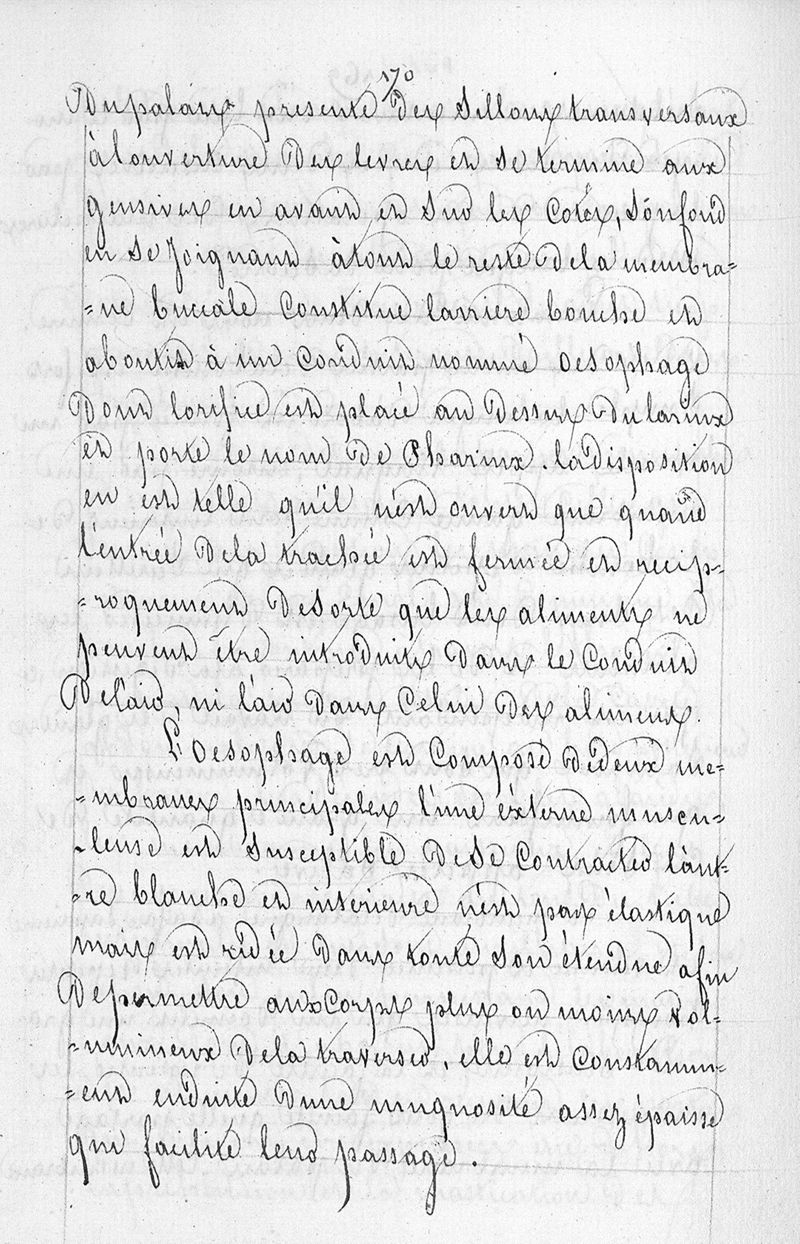 170
Du palaix presente des Sillons transversaux
à louverture des levres et se termine aux
gensives en avant et sur les Cotés, Son fond
en se joignant à tout le reste de la membra=
=ne buccale Constitue larriere bouche et
aboutit à un Conduit nommé Oesophage
Dont lorifice est placé au dessus du larinx
et porte le nom de Pharinx. la disposition
en est telle qu'il n'est ouvert que quand
l'entrée de la trachée est fermée et recip=
=roquement de sorte que les aliments ne
peuvent être introduits dans le Conduit
De l'air, ni lair dans Celui des alimens.
L'Oesophage est Composé de deux me=
=mbranes principales l'une éxterne muscu=
=leuse est Susceptible de se Contracter làut=
=re blanche et interieure n'est pas élastique
mais est ridée dans toute Son étendue afin
De permettre aux Corps plus ou moins vol=
=umineux de la traverser, elle est Constamm=
=ent enduite d'une muquosité assez épaisse
qui facilite leur passage.